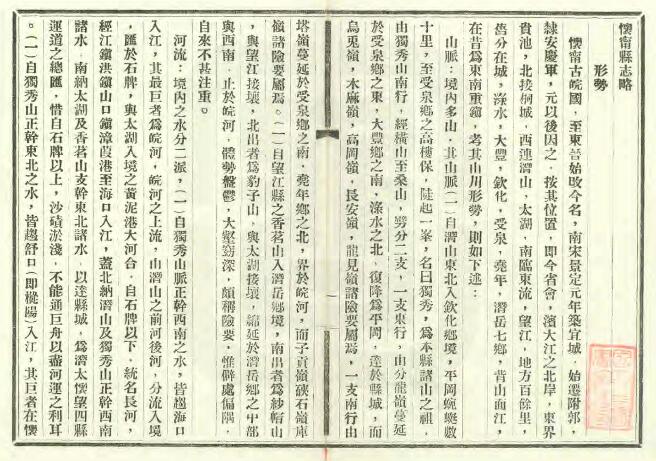 懷甯縣志略
形勢
懷甯古皖國，至東晉始改今名，南宋景定元年築宜城，始遷附郭，
隸安慶軍，元以後因之，按其位置，即今省會，濱大江之北岸，東界
貴池，北接桐城，西連潛山，太湖，南臨東流，望江，地方百餘里，
舊分在城，淥水，大豐，欽化，受泉，堯年，潛岳七鄉，背山面江，
在昔為東南重鎮，考其山川形勢，則如下述：
山脈：境內多山，其山脈（一）自潛山東北入欽化鄉境，平岡蜿蜒數
十里，至受泉鄉之高樓保，陡起一峯，名曰獨秀，為本縣諸山之祖
由獨秀山南行，經橫山至桑山，劈分二支，一支東行，由分龍嶺蔓延
於受泉鄉之東，大豐鄉之南，淥水之北，復降為平岡，達於縣城，而
烏兎嶺，木麻嶺，高岡嶺，長安嶺，龍見嶺諸險要屬焉，一支南行由
塔嶺蔓延於受泉鄉之南，堯年鄉之北，界於皖河，而子貢嶺硤石嶺庫
嶺諸險要屬焉。（一）自望江縣之香茗山入潛岳鄉境，南出者為紗帽山
，與望江接壤，北出者為豹子山，與太湖接壤，綿延於潛岳鄉之中部
與西南，止於皖河，體勢盤鬱，大壑窈深，頗稱險要，惟僻處偏隅，
自來不甚注重。
河流：境內之水分二派，（一）自獨秀山脈正幹西南之水，皆趨海口
入江，其最巨者為皖河，皖河之上流，由潛山之前河後河，分流入境
，匯於石牌，與太湖入境之黃泥港大河合，自石牌以下，統名長河，
經江鎮洪鎮山口鎮漳葭港至海口入江，蓋北納潛山及獨秀山正幹西南
諸水，南納太湖及香茗山支幹東北諸水，以達縣城，為潛太懷望四縣
運道之總匯，惜自石牌以上，沙磧淤淺，不能通巨舟以盡河運之利耳
。（一）自獨秀山正幹東北之水，皆趨舒口（即樅陽）入江，其巨者在懷